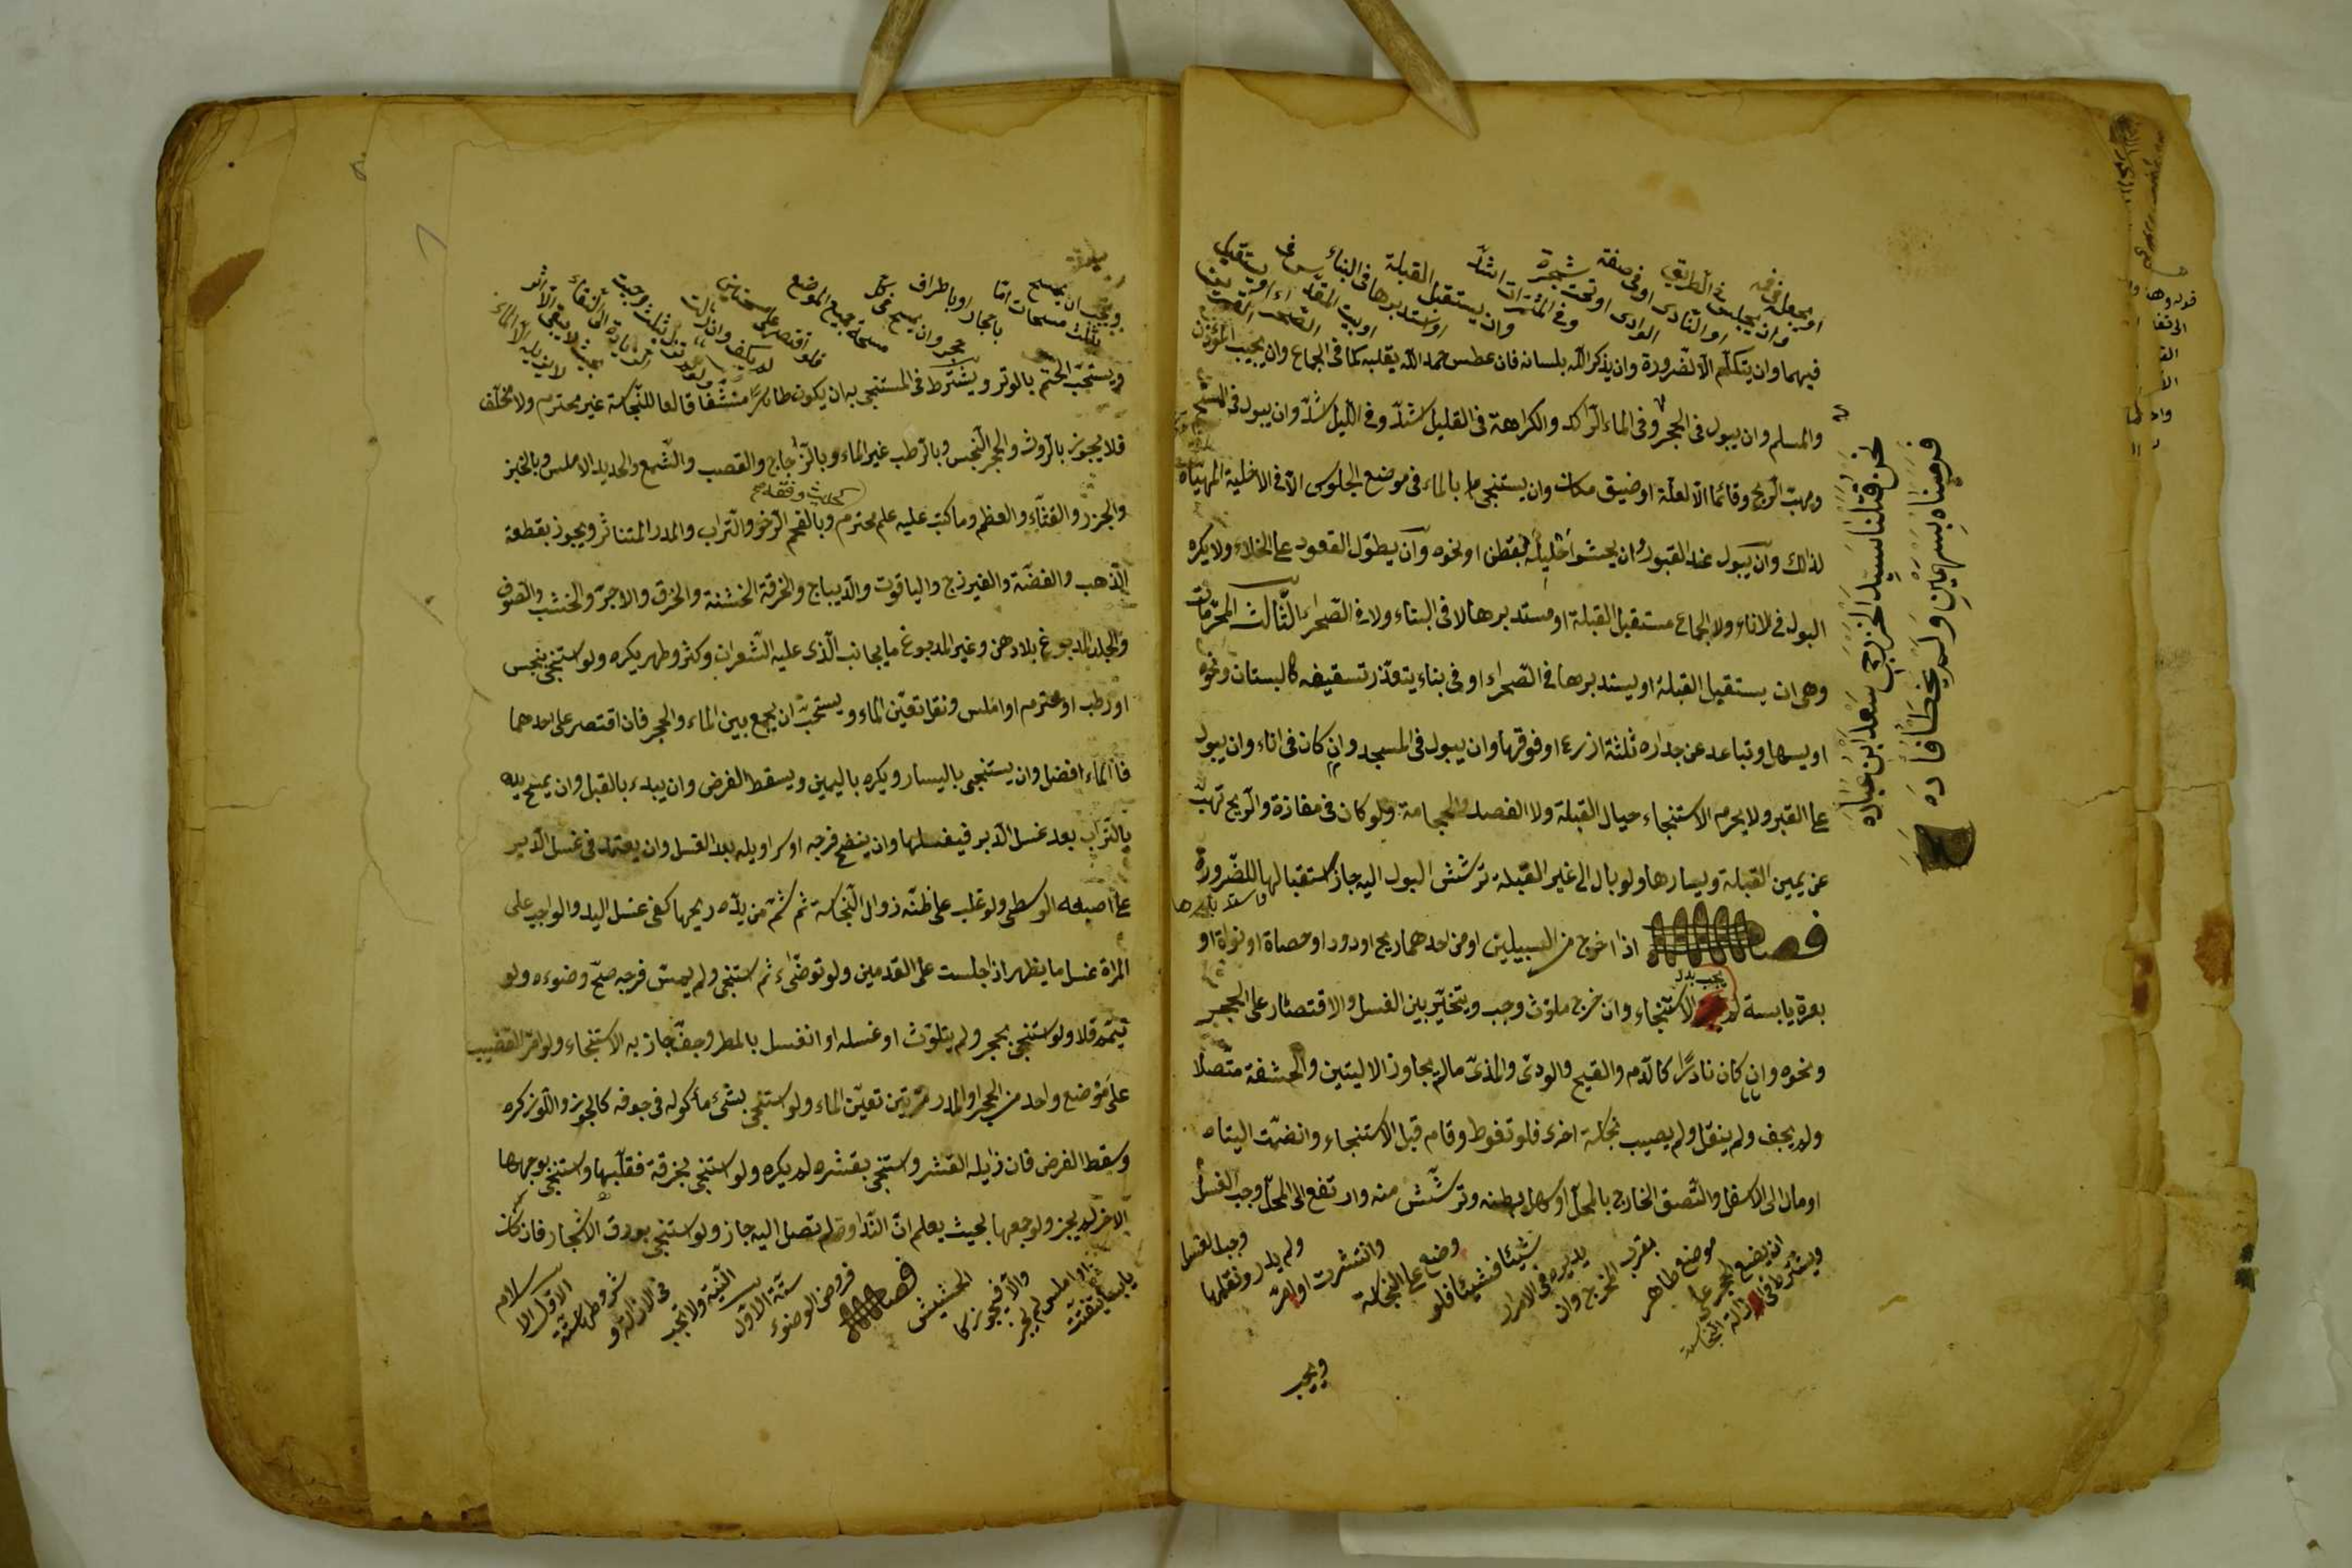 او يجعل في فمه
وان يجلس في الطريق
او النادى او فى صفة
الوادى او تحت شجرة
وفى المثمرات اشد
وان يستقبل القبلة
او يستدبرها فى البناء
او بيت المقدس فى
الصحراء او يستقبل
فيهما وان يتكلم الا لضرورة وان يذكر الله بلسانه فان عطس حمد الله بقلبه كما فى الجماع وان يجيب المؤذن
والمسلم وان يبول فى الجحر وفى الماء الراكد والكراهة فى القليل اشد وفى الليل اشد وان يبول فى
ومهب الريح وقائما الا لعلة او ضيق مكان وان يستنجى بالماء فى موضع الجلوس الا فى الاخلية المهيأة
لذلك وان يبول عند القبور وان يحشو احليله بقطن او نحوه وان يطول القعود على الخلاء ولا يكره
البول فى الاناء ولا الجماع مستقبل القبلة او مستدبرها لا فى البناء ولا فى الصحراء الثالث المحرمات
وهى ان يستقبل القبلة او يستدبرها فى الصحراء او فى بناء يتعذر تسقيفه كالبستان ونحوه
او يسهل وتباعد عن جداره ثلثة اذرع او فوقها وان يبول فى المسجد وان كان فى اناء وان يبول
على القبر ولا يحرم الاستنجاء حيال القبلة ولا الفصد والحجامة ولو كان فى مفازة والريح تهب
عن يمين القبلة ويسارها ولو بال الى غير القبلة ترشش البول اليه جاز استقبالها للضرورة
فصل اذا خرج من السبيلين او من احدهما ريح او دود او حصاة او نواة او
بعرة يابسة لم يجب الاستنجاء وان خرج ملوث وجب ويتخير بين الغسل والاقتصار على الحجر
ونحوه وان كان نادرا كالدم والقيح والودى والمذى مالم يجاوز الاليتين والحشفة متصلا
ولم يجف ولم ينتقل ولم يصبب نجاسة اخرى فلو تغوط وقام قبل الاستنجاء وانضمت اليتاه
او مال الى الاسفل والتصق الخارج بالمحل او سهل بطنه وترشش منه وارتفع الى المحل وجب الغسل
ويشترط فى ازالة النجاسة
ان يضع الحجر على
موضع طاهر
بقرب المخرج وان
يديره فى الامرار
شيئا فشيئا فلو
وضع على النجاسة
وانتشرت او امر
ولم يدر ونقلها
وجب الغسل
ويجب
نحن قتلنا سيد الخزرج سعد ابن عباده
فرميناه بسهمين ولم يخطا فاده
ويجب ان يمسح
ثلث مسحات اما
باحجار او باطراف
حجر وان يمسح فى كل
مسحة جميع الموضع
فلو اقتصر على مسحتين
لم يكف وان زالت
ويستحب الختم بالوتر ويشترط فى المستنجى به ان يكون طاهرا منشفا قالعا للنجاسة غير محترم ولا مخلف
فلا يجوز بالروث والحجر النجس وبالرطب غير الماء وبالزجاج والقصب والشمع والحديد الاملس وبالخبز
كحديث وفقه
والجزر والقثاء والعظم وما كتب عليه علم محترم وبالفحم الرخو والتراب والمدر المتناثر ويجوز بقطعة
الذهب والفضة والفيرزج والياقوت والديباج والخرقة الخشنة والخزف والاجر والخشب والصوف
والجلد المدبوغ بلا دهن وغير المدبوغ ما بجانب الذى عليه الشعر ان وكثر وطهر يكره ولو استنجى بنجس
او رطب او محترم او املس ونقل تعين الماء ويستحب ان يجمع بين الماء والحجر فان اقتصر على احدهما
فالماء افضل وان يستنجى باليسار ويكره باليمين ويسقط الفرض وان يبدء بالقبل وان يمسح يده
بالتراب بعد غسل الدبر فيغسلها وان ينضح فرجه او سراويله بعد الغسل وان يعتمد فى غسل الدبر
على اصبعه الوسطى ولو غلب على ظنه زوال النجاسة ثم شم من يده ريحها كفى غسل اليد والواجب على
المراة غسل ما يظهر اذا جلست على القدمين ولو توضىء ثم استنجى ولم يمس فرجه صح وضوءه ولو
تيمم فلا ولو استنجى بحجر ولم يتلوث او غسله او انغسل بالمطر وجف جاز به الاستنجاء ولو امر القضيب
على موضع واحد من الحجر او المدر مرتين تعين الماء ولو استنجى بشىء ماكوله فى جوفه كالجوز واللوز كره
وسقط الفرض فان زايله القشر واستنجى بقشره لم يكره ولو استنجى بخرقة فقلبها واستنجى بوجهها
الاخر لم يجز ولو جمعها بحيث يعلم ان النداوة لم تصل اليه جاز ولو استنجى بورق الاشجار فان كان
يابسا يتفتت
او املس لم يجز
والا فيجوز كا
الحشيش
فصل
فروض الوضوء
ستة الاول
النية ولا تجب
فى الازالة و
شروطها ستة
الاول الا
سلام